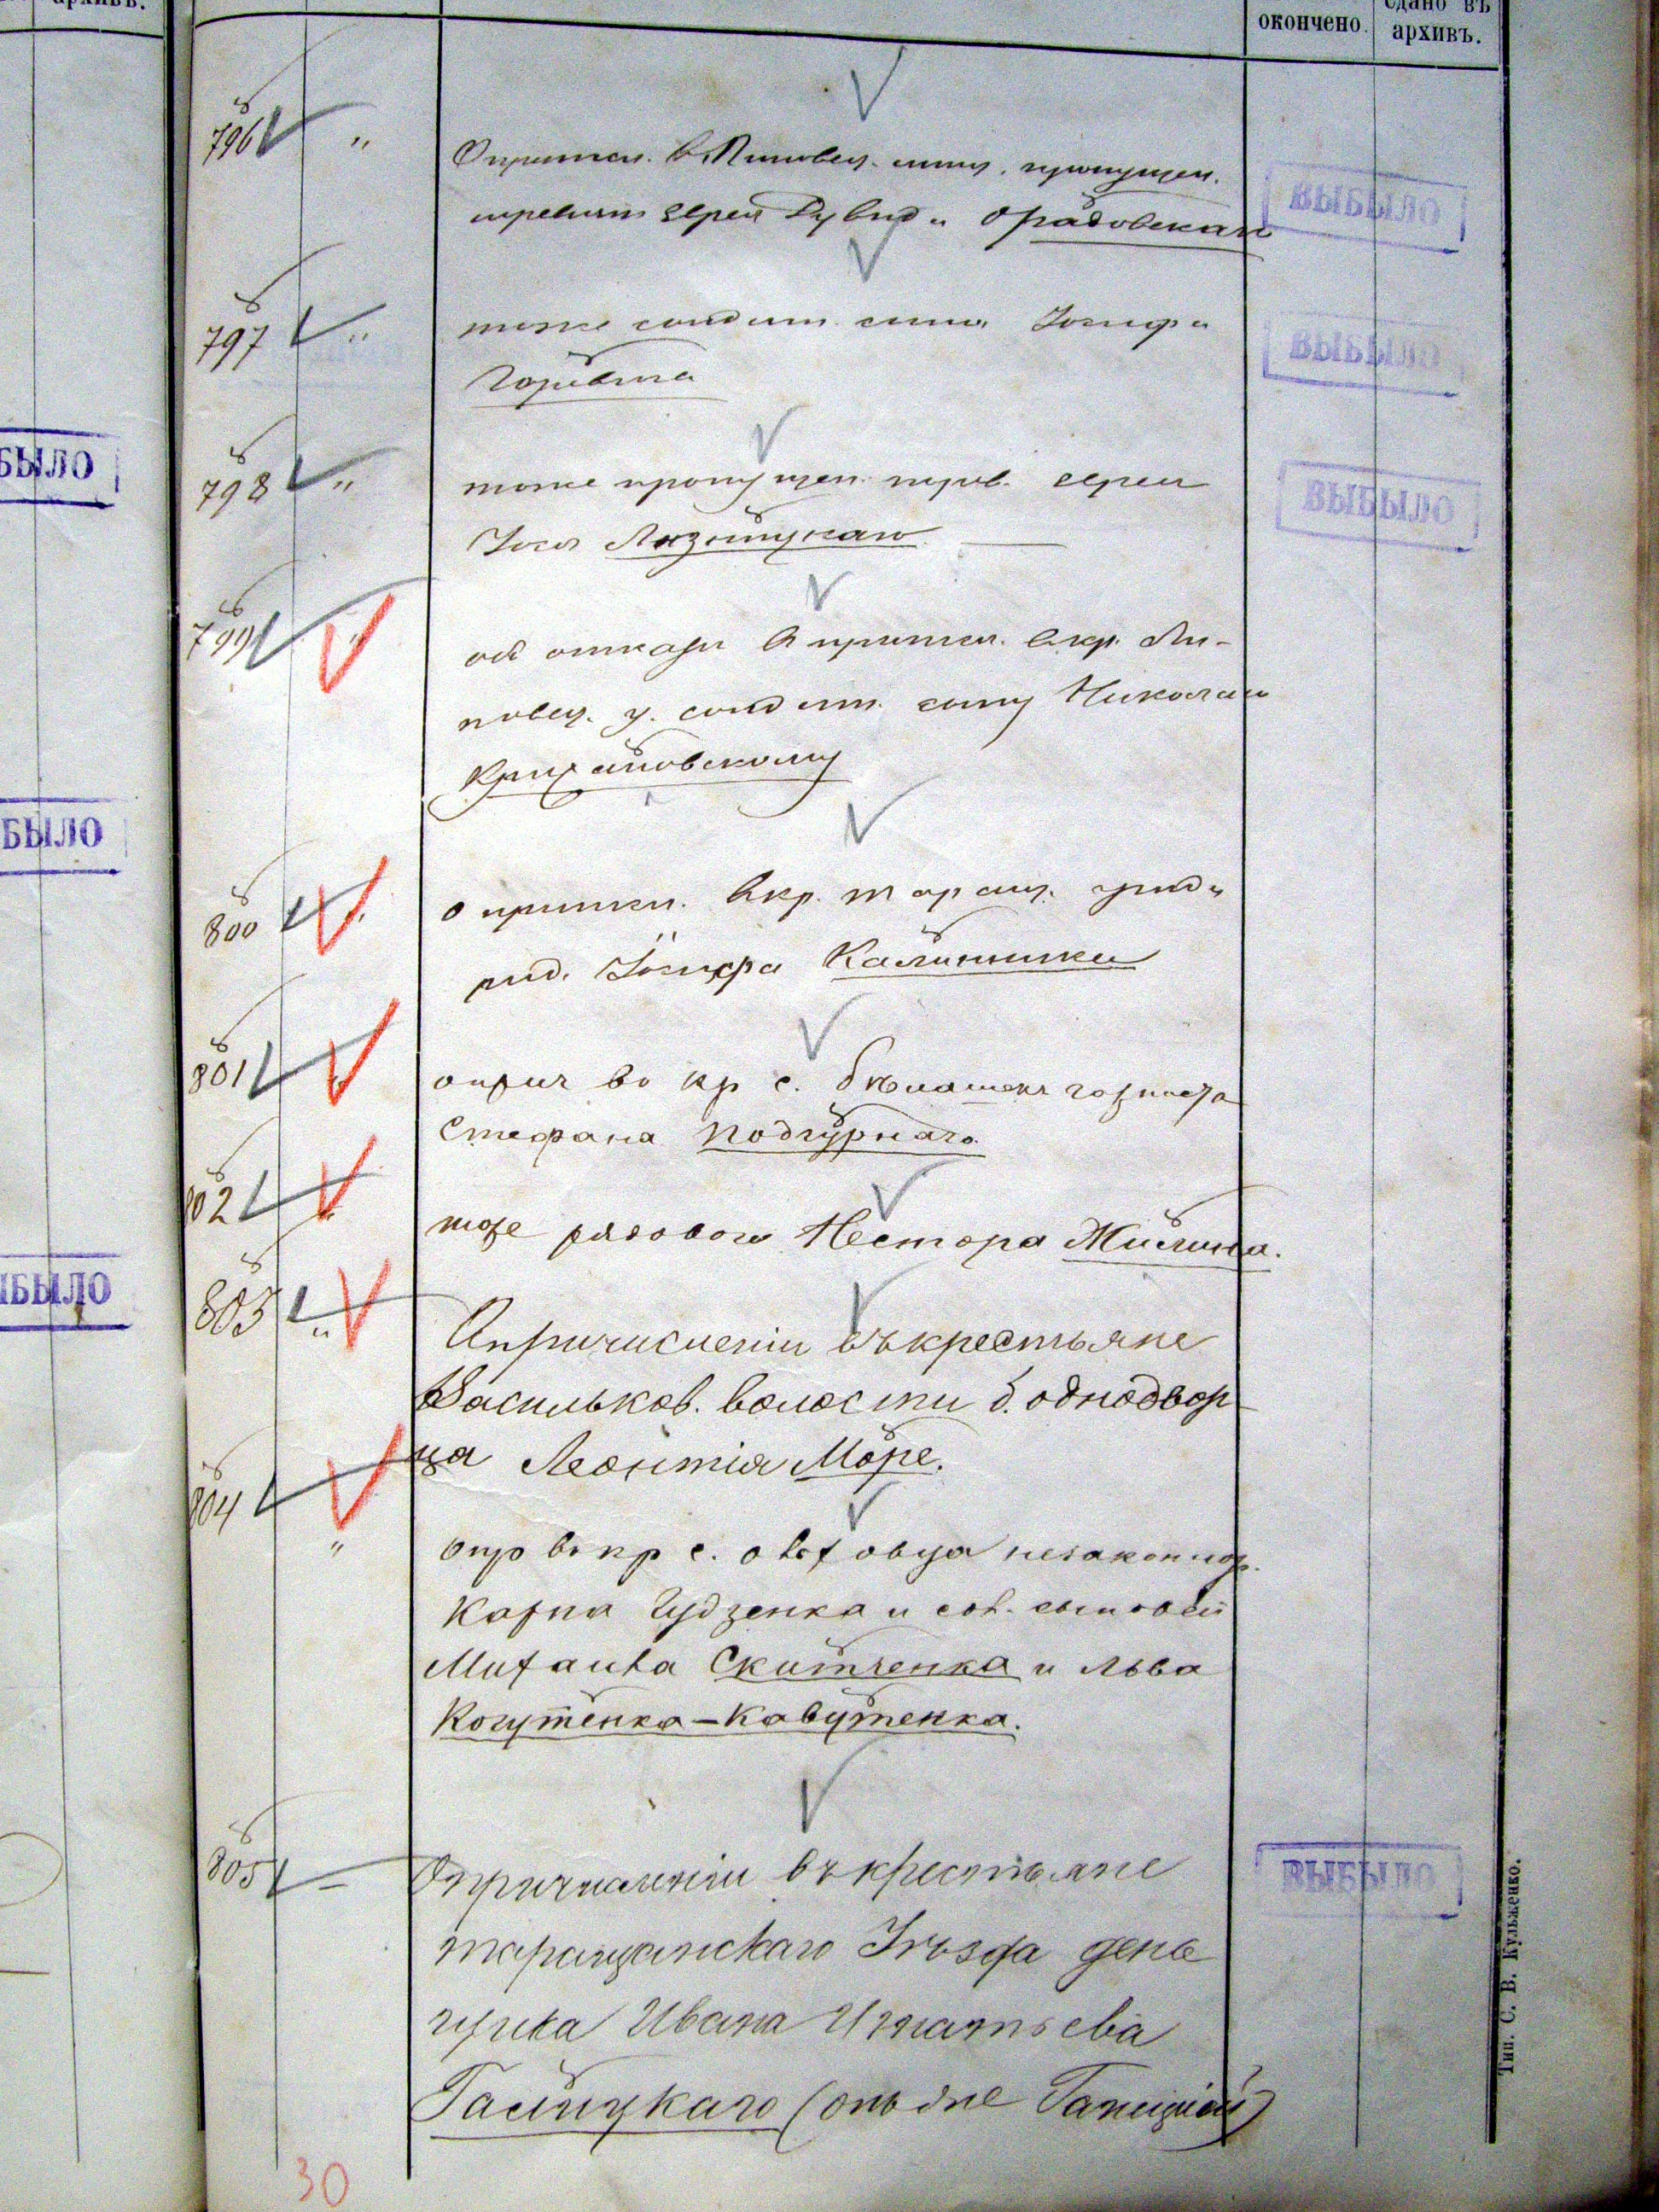 архивъ.
окончено.
сдано въ
архивъ.
796 "
О причисл. в Липовец. мещ. пропущен.
еврея Дувида Орадовскаго
797 "
тоже солдат. сына Іосифа
798 "
тоже пропущен. еврея
799 "
об отказе в причисл. в кр. Ли-
повец. у. солдат. сыну Николаю
Крижановскому
800 "
о причисл. в кр. таращ. уезда
ряд. Іосифа Калинника
801 "
о прич во кр с.
Стефана Подгурнаго
802 "
тоже рядового Нестора Жилина.
803 "
О причислении въ крестьяне
Васильков. волости б. однодвор-
ца Леонтія Море.
804 "
о пр во кр с. незаконнор.
Карпа Гудзенка и сол. сыновей
Михаила Скитченка и Льва
Когутенка-Кавутенка.
805 -
О причислении въ крестьяне
таращанскаго Уѣзда день
щика Ивана Игнатьева
Галицкаго (онъ же Галицкій)
ВЫБЫЛО
ВЫБЫЛО
ВЫБЫЛО
ВЫБЫЛО
БЫЛО
БЫЛО
ЫБЫЛО
30
Тип. С. В. Кульженко.